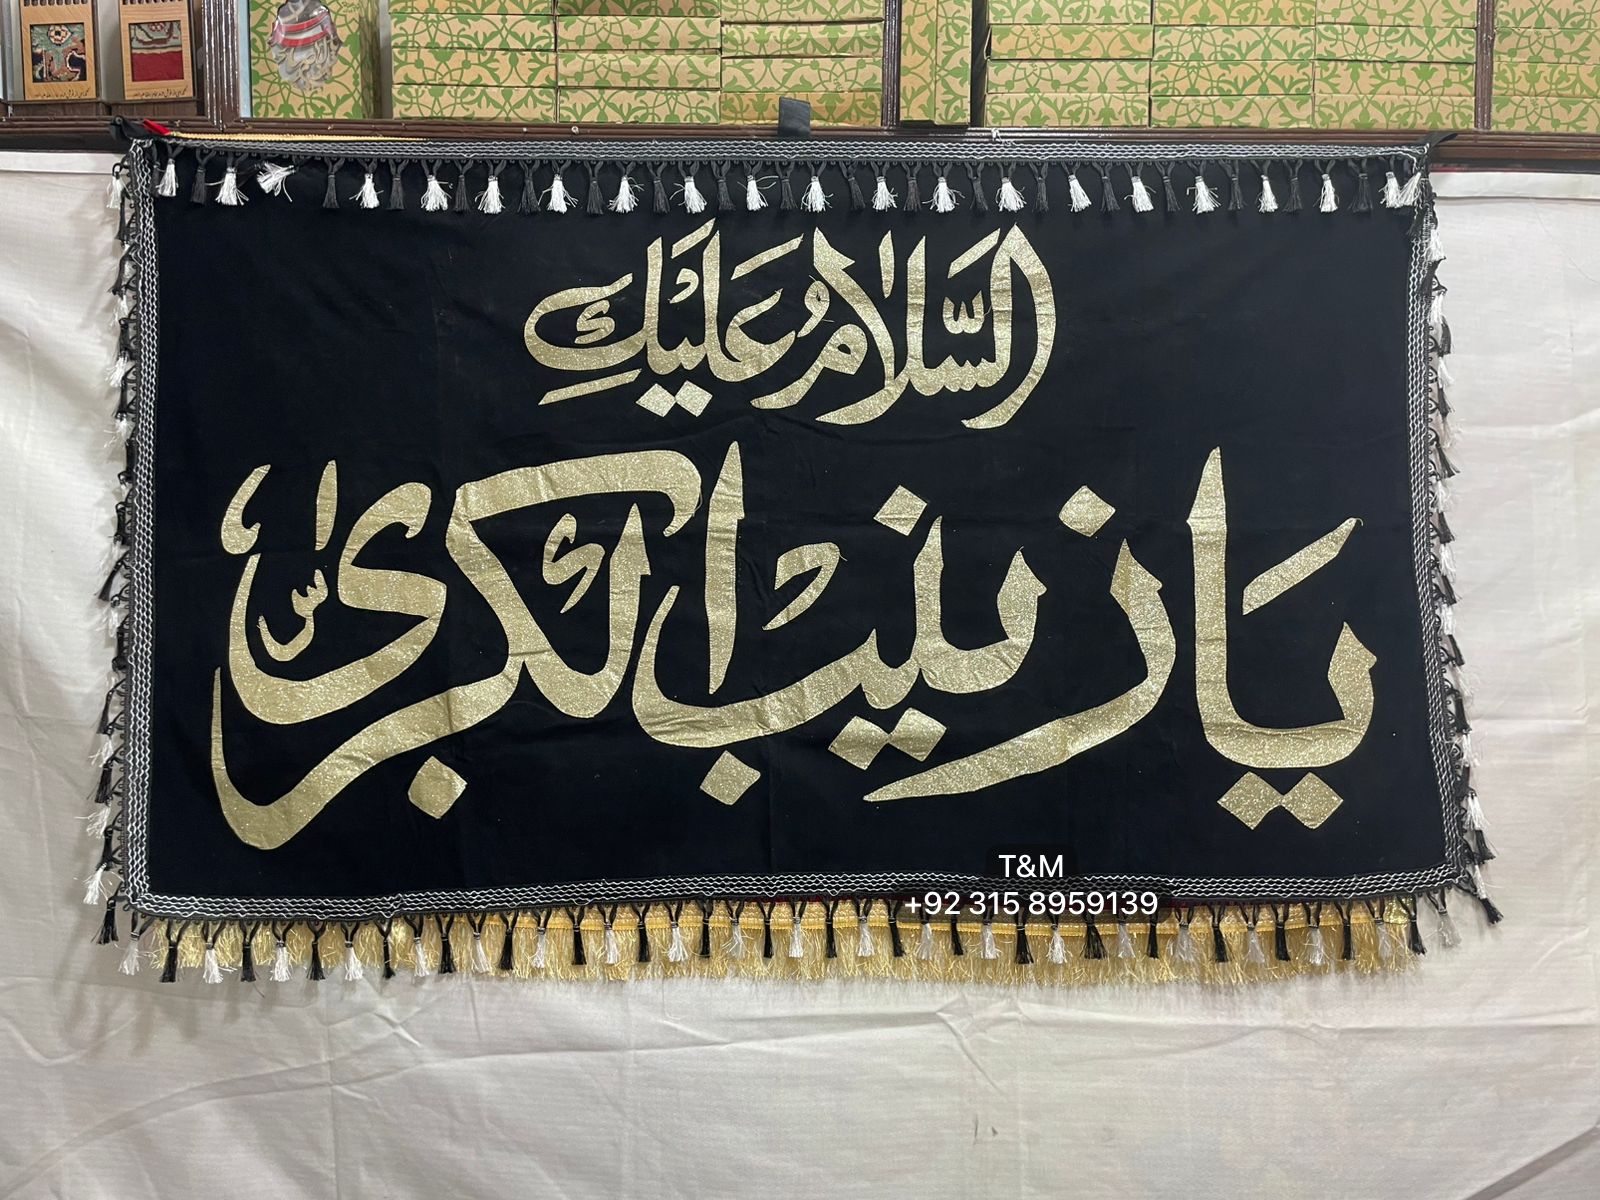 السَّلَامُ عَلَيْكِ
يَا زينب الكبرىٰ
T&M
+92 315 8959139